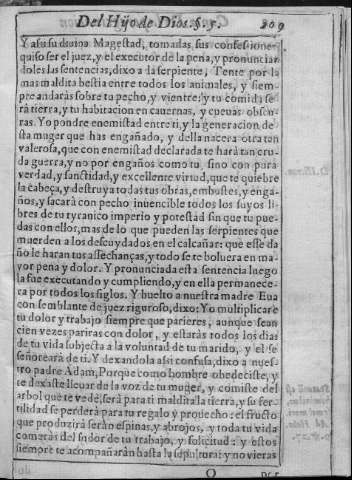 Del Hijo de Dios. §. 5. 209
Y assi su diuina Magestad, tomadas sus confessiones
quiso ser el juez, y el executor de la pena, y pronunciar
doles las sentencias, dixo a la serpiente; Tente por la
mas maldita bestia entre todos los animales, y siem
pre andaràs sobre tu pecho, y vientre; y tu comida se
rà tierra, y tu habitacion en cauernas, y cueuas obscu-
ras. Yo pondre enemistad entre ti, y la generacion de
sta muger que has engañado, y della nacera otra tan
valerosa, que con enemistad declarada te harà tan cru
da guerra, y no por engaños como tu, sino con pura
verdad, y sanctidad, y excelente virtud, que te quiebre
la cabeça, y destruya todas tus obras, embustes, y enga
ños, y sacarà con pecho inuencible todos los suyos li
bres de tu tyranico imperio y potestad sin que tu pue-
das con ellos, mas de lo que pueden las serpientes que
muerden a los descuydados en el calcañar: que esse da
ño le haran tus assechanças, y todo se te boluera en ma
yor pena y dolor. Y pronunciada esta sentencia luego
la fue executando y cumpliendo, y en ella permanece-
ra por todos los siglos. Y buelto a nuestra madre Eua
con semblante de juez riguroso, dixo: Yo multiplicarè
tu dolor y trabajo siempre que parieres, aunque sean
cien vezes pariras con dolor, y estaràs todos los dias
de tu vida subjecta a la voluntad de tu marido, y el se
señorearà de ti. Y dexandola assi confusa, dixo a nues-
tro padre Adam, Porque como hombre obedeciste, y
te dexaste lleuar de la voz de tu muger, y comiste del
arbol que te vedè, serà para ti maldita la tierra, y su fer-
tilidad se perderà para tu regalo y prouecho: el fructo
que produzirà seràn espinas, y abrojos, y toda tu vida
comeràs del sudor de tu trabajo, y solicitud: y estos
siempre te acompañaràn hasta la sepultura: y no vieras
O